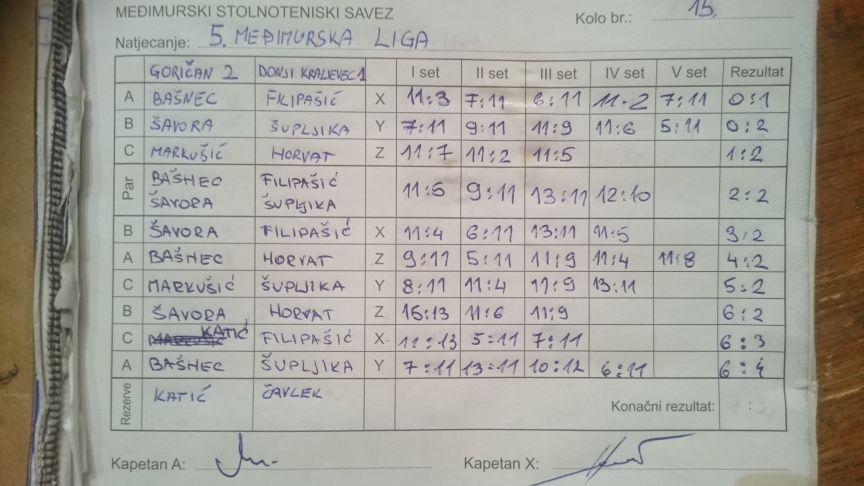 MEĐIMURSKI STOLNOTENISKI SAVEZ
Kolo br.: 15.
Natjecanje: 5. MEĐIMURSKA LIGA
GORIČAN 2 DONJI KRALJEVEC 1 I set II set III set IV set V set Rezultat
A BAŠNEC FILIPAŠIĆ X 11:3 7:11 6:11 11-2 7:11 0:1
B ŠAVORA ŠUPLJIKA Y 7:11 9:11 11:9 11:6 5:11 0:2
C MARKUŠIĆ HORVAT Z 11:7 11:2 11:5 1:2
Par BAŠNEC FILIPAŠIĆ 11:5 9:11 13:11 12:10 2:2
ŠAVORA ŠUPLJIKA
B ŠAVORA FILIPAŠIĆ X 11:4 6:11 13:11 11:5 3:2
A BAŠNEC HORVAT Z 9:11 5:11 11:9 11:4 11:8 4:2
C MARKUŠIĆ ŠUPLJIKA Y 8:11 11:4 11:9 13:11 5:2
B ŠAVORA HORVAT Z 15:13 11:6 11:9 6:2
C KATIĆ FILIPAŠIĆ X 11:13 5:11 7:11 6:3
A BAŠNEC ŠUPLJIKA Y 7:11 13:11 10:12 6:11 6:4
Rezerve KATIĆ ČAVLEK Konačni rezultat: :
Kapetan A: Kapetan X: